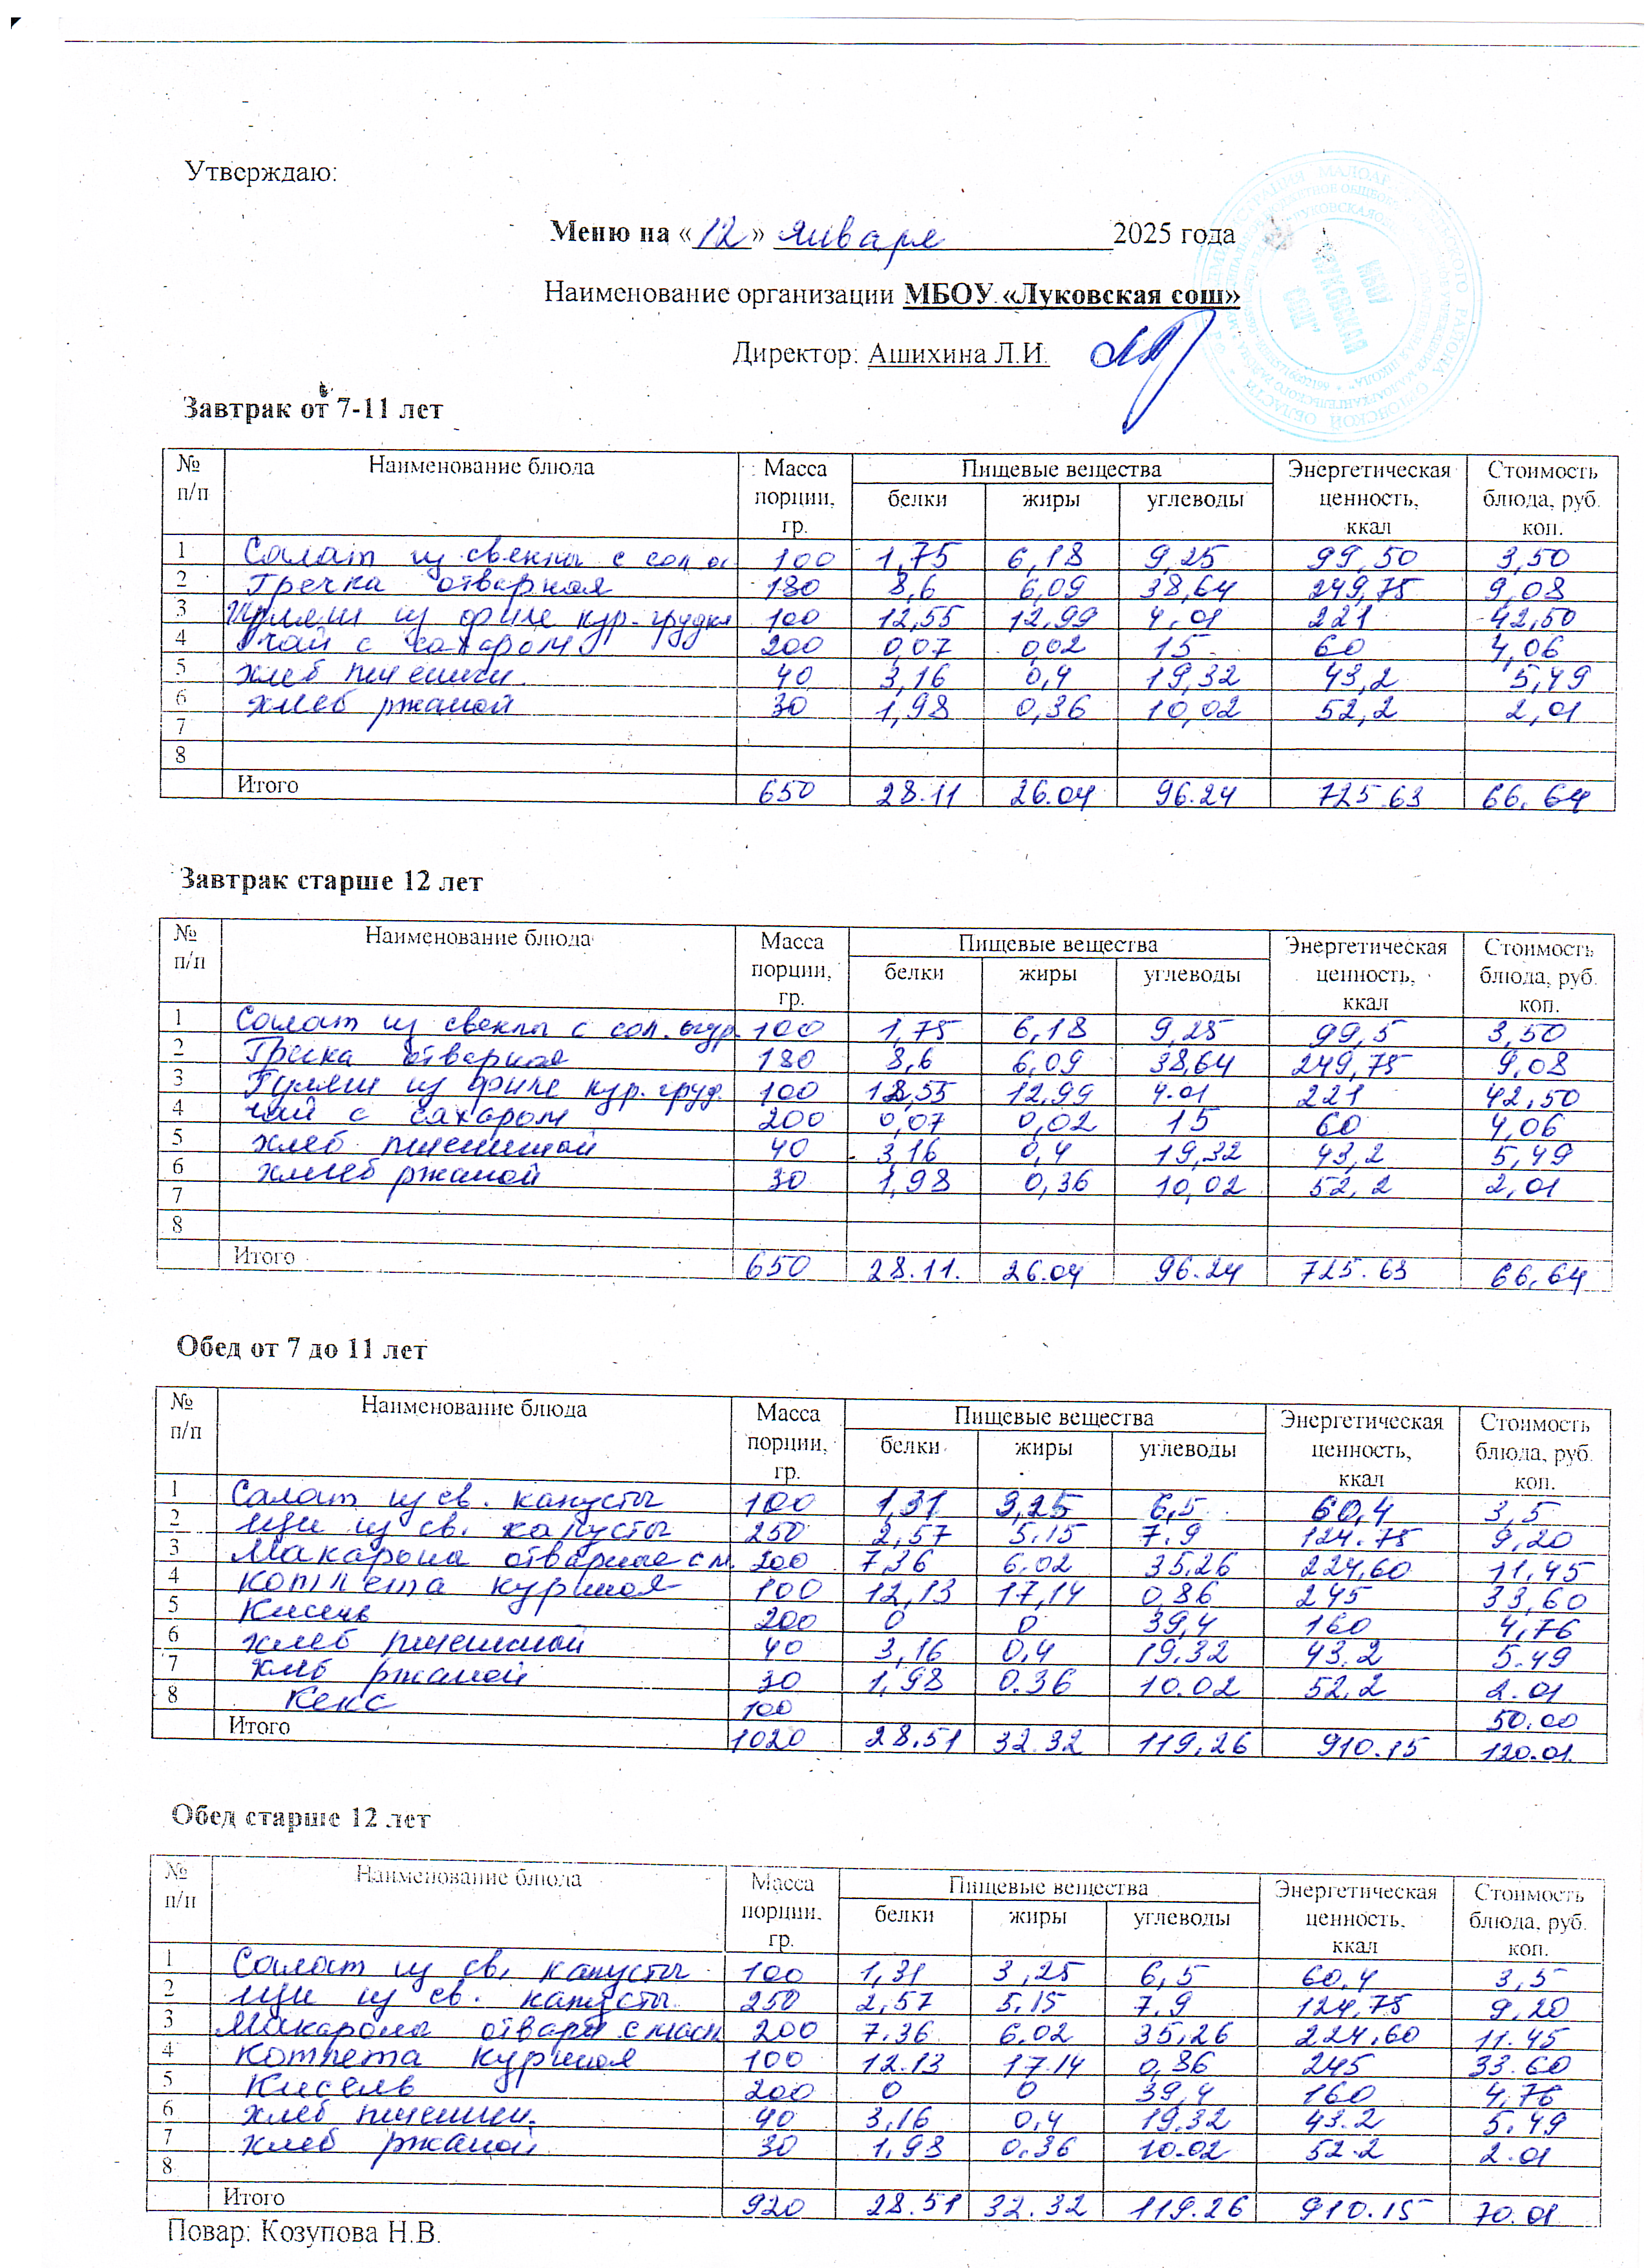 Утверждаю:
Меню на «12» января 2025 года
Наименование организации МБОУ «Луковская сош»
Директор: Ашихина Л.И.
Завтрак от 7-11 лет
№ п/п Наименование блюда Масса порции, гр. Пищевые вещества белки жиры углеводы Энергетическая ценность, ккал Стоимость блюда, руб. коп.
1 Салат из свеклы с сол ог 100 1,75 6,18 9,25 99,50 3,50
2 Гречка отварная 180 8,6 6,09 38,64 249,75 9,08
3 из филе кур. грудки 100 12,55 12,99 4,01 221 42,50
4 чай с сахаром 200 0,07 0,02 15 60 4,06
5 хлеб пшеничн. 40 3,16 0,4 19,32 43,2 5,49
6 хлеб ржаной 30 1,98 0,36 10,02 52,2 2,01
7
8
Итого 650 28.11 26.04 96.24 725.63 66,64
Завтрак старше 12 лет
№ п/п Наименование блюда Масса порции, гр. Пищевые вещества белки жиры углеводы Энергетическая ценность, ккал Стоимость блюда, руб. коп.
1 Салат из свеклы с сол. огур. 100 1,75 6,18 9,25 99,5 3,50
2 Гречка отварная 180 8,6 6,09 38,64 249,75 9,08
3 Гуляш из филе кур. груд. 100 12,55 12,99 4.01 221 42,50
4 чай с сахаром 200 0,07 0,02 15 60 4,06
5 хлеб пшеничной 40 3,16 0,4 19,32 43,2 5,49
6 хлеб ржаной 30 1,98 0,36 10,02 52,2 2,01
7
8
Итого 650 28.11. 26.04 96.24 725.63 66,64
Обед от 7 до 11 лет
№ п/п Наименование блюда Масса порции, гр. Пищевые вещества белки жиры углеводы Энергетическая ценность, ккал Стоимость блюда, руб. коп.
1 Салат из св. капусты 100 1,31 3,25 6,5 60,4 3,5
2 щи из св. капусты 250 2,57 5.15 7.9 124.75 9,20
3 Макароны отварные с м. 200 7,36 6.02 35,26 224,60 11,45
4 котлета куриная 100 12,13 17,14 0,86 245 33,60
5 Кисель 200 0 0 39,4 160 4,76
6 хлеб пшеничной 40 3,16 0,4 19.32 43.2 5.49
7 хлеб ржаной 30 1,98 0.36 10.02 52.2 2.01
8 Кекс 100 50.00
Итого 1020 28.51 32.32 119,26 910.15 120.01.
Обед старше 12 лет
№ п/п Наименование блюда Масса порции, гр. Пищевые вещества белки жиры углеводы Энергетическая ценность, ккал Стоимость блюда, руб. коп.
1 Салат из св. капусты 100 1,31 3,25 6,5 60,4 3,5
2 щи из св. капусты 250 2,57 5,15 7.9 124,75 9,20
3 Макароны отварн с масл 200 7.36 6.02 35,26 224,60 11.45
4 котлета куриная 100 12.13 17.14 0,86 245 33.60
5 Кисель 200 0 0 39,4 160 4,76
6 хлеб пшеничн. 40 3,16 0,4 19,32 43.2 5.49
7 хлеб ржаной 30 1,98 0.36 10.02 52.2 2.01
8
Итого 920 28.51 32.32 119.26 910.15 70.01
Повар: Козупова Н.В.